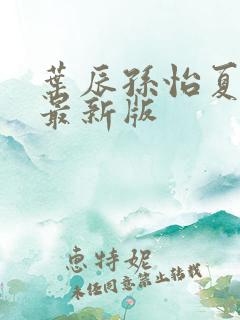 葉辰孫怡夏
最新版
惠特妮
未经同意禁止转载